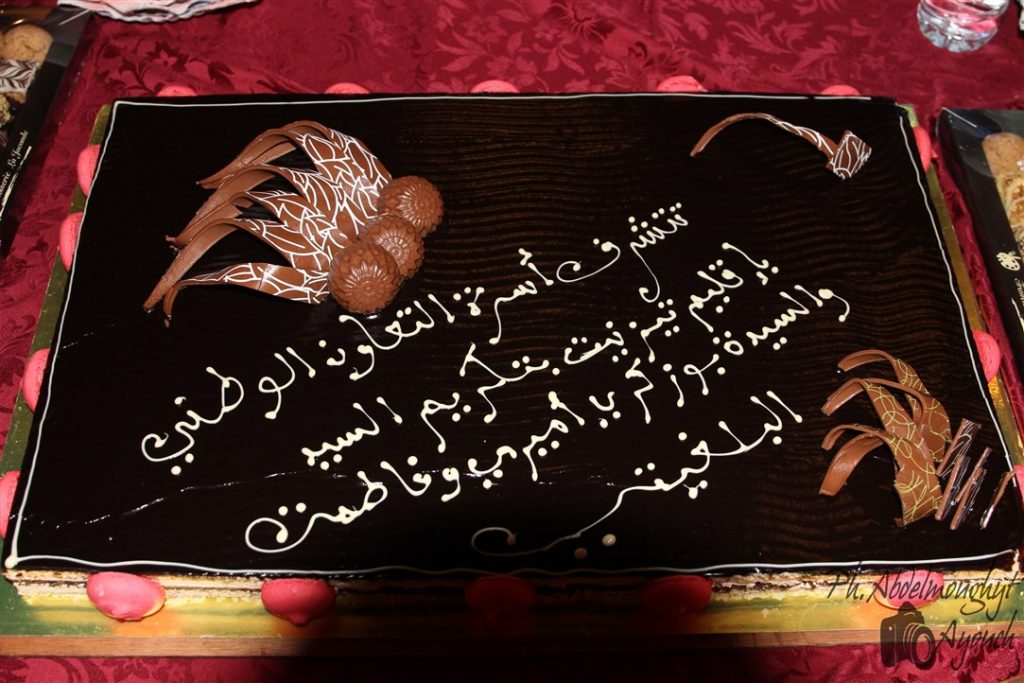 تتشرف أسرة التعاون الوطني
بإقليم تيزنيت بتكريم السيد
والسيدة بوزكرب اميري وفاطمة
البلغيتي
Ph. Abdelmonghyt
Ayouch